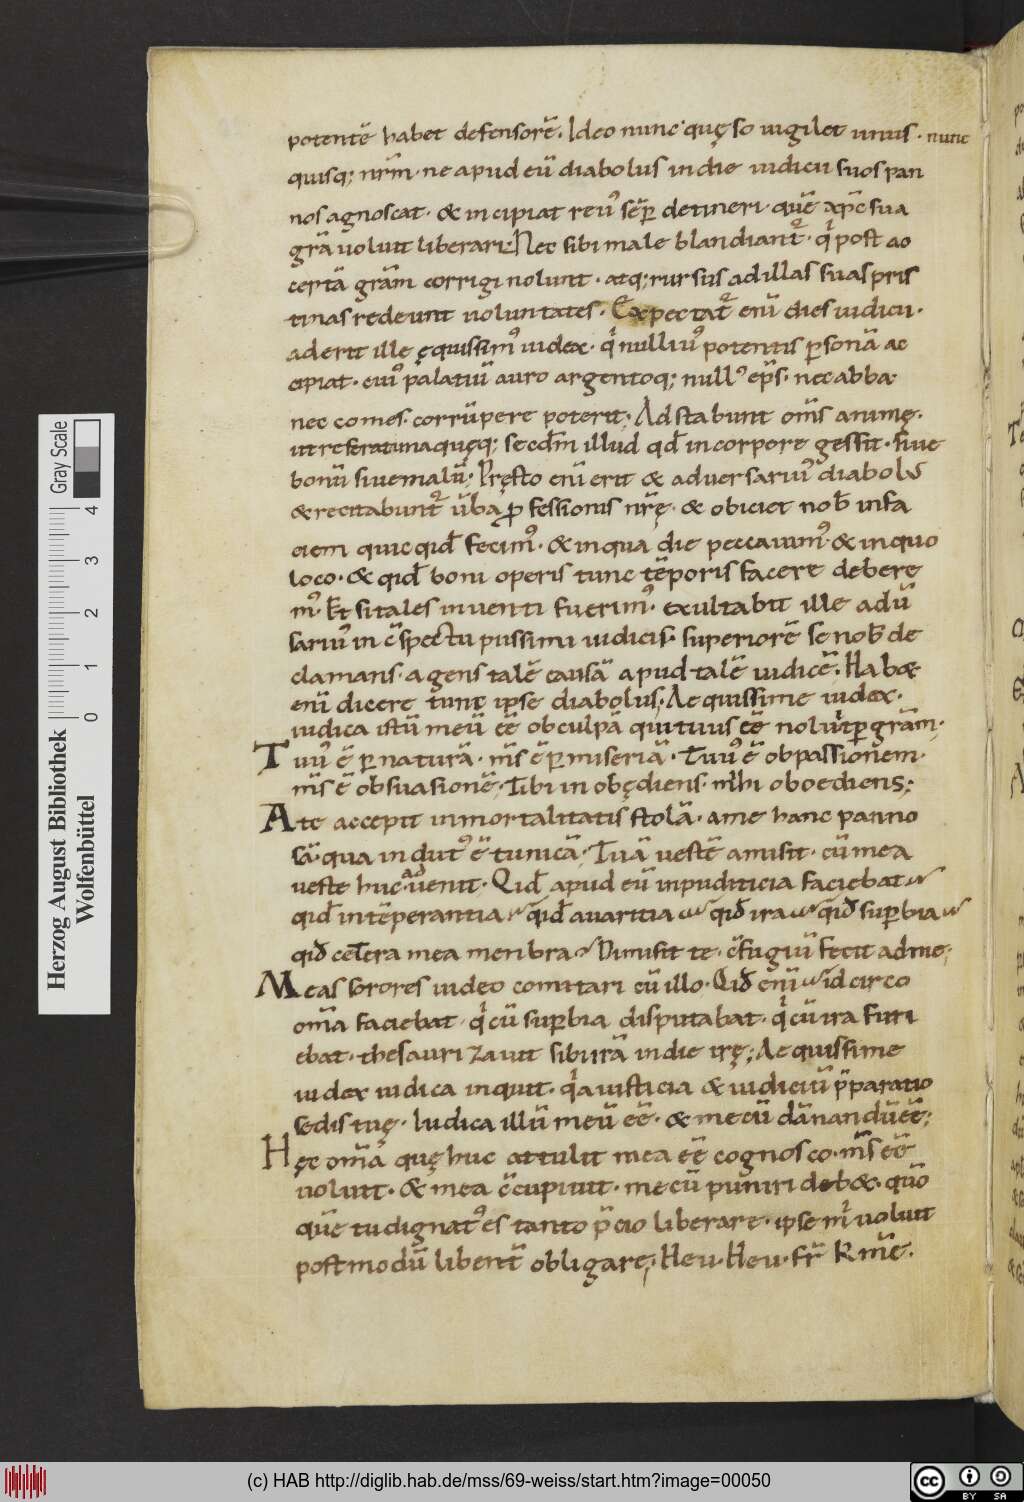 potentē habet defensorē. Ideo nunc quęso uigilet unus. nunc
quisq; nr̄m. ne apud eū diabolus in die iudicii suos pan
nos agnoscat. & incipiat reuˀ sēp detineri. quē xp̄c sua
grā uoluit liberari: Nec sibi male blandiant̄. qͥ post ac
ceptā grām corrigi nolunt. atq; rursus ad illas suas pris
tinas redeunt uoluntates. Expectat̄ enī dies iudicii.
aderit ille ęquissimˀ iudex. qͥ nulliuˀ potentis p̄sonā ac
cipiat. cuiˀ palatiū auro argentoq; nullˀ ep̄s. nec abba.
nec comes. corrūpere poterit; Adstabunt om̄s animę.
ut referat unaquęq; secd̄m illud qd̄ in corpore gessit. siue
bonū siue malū; Pręsto enī erit & aduersariuˀ diabolꝰ
& recitabunt̄ ūba ꝓfessionis nr̄ę. & obiciet nob̄ in fa
ciem quicqid̄ fecimˀ. & in qua die peccauimˀ. & in quo
loco. & qid̄ boni operis tunc tēporis facere debere
mˀ. Et si tales inuenti fuerimˀ. exultabit ille adū
sariuˀ in c̄spectu piissimi iudicis. superiorē se nob̄ de
clamans. agens talē causā apud talē iudicē. Hab&
enī dicere tunc ipse diabolus; Aequissime iudex.
iudica istū meū ēē ob culpā qui tuus ēē noluit p̱ grām.
Tuuˀ ē p̱ naturā. m̄s ē p̱ miseriā. Tuuˀ ē ob passionem.
m̄s ē ob suasionē. Tibi inobędiens. mihi oboediens;
A te accepit inmortalitatis stolā. a me hanc panno
sā. qua indutˀ ē tunicā. Tuā uestē amisit. cū mea
ueste huc aduenit. Qid̄ apud eū inpudicicia faciebat
qid̄ intēperantia qid̄ auaritia qid̄ ira qid̄ sup̱bia
qid̄ cetera mea menbra Dimisit te. c̄fugiū fecit ad me.
Meas sorores uideo comitari cū illo. Qid̄ enī idcirco
om̄a faciebat. qͥ cū sup̱bia disputabat. qͥ cū ira futi
ebat. thesaurizauit sibi irā in die irę; Aequissime
iudex iudica inquit. qͥa iusticia & iudiciū p̄paratio
sedis tuę. Iudica illū meū ēē. & mecū dānandū ēē;
Hęc om̄a quę huc attulit mea ēē cognosco. m̄s ēē
uoluit. & mea c̄cupiuit. mecū puniri deb&. quō
quē tu dignatˀ es tanto p̄cio liberare. ipse mͥ uoluit
postmodū libent̄ obligare; Heu. Heu. fr̄ Kmē.